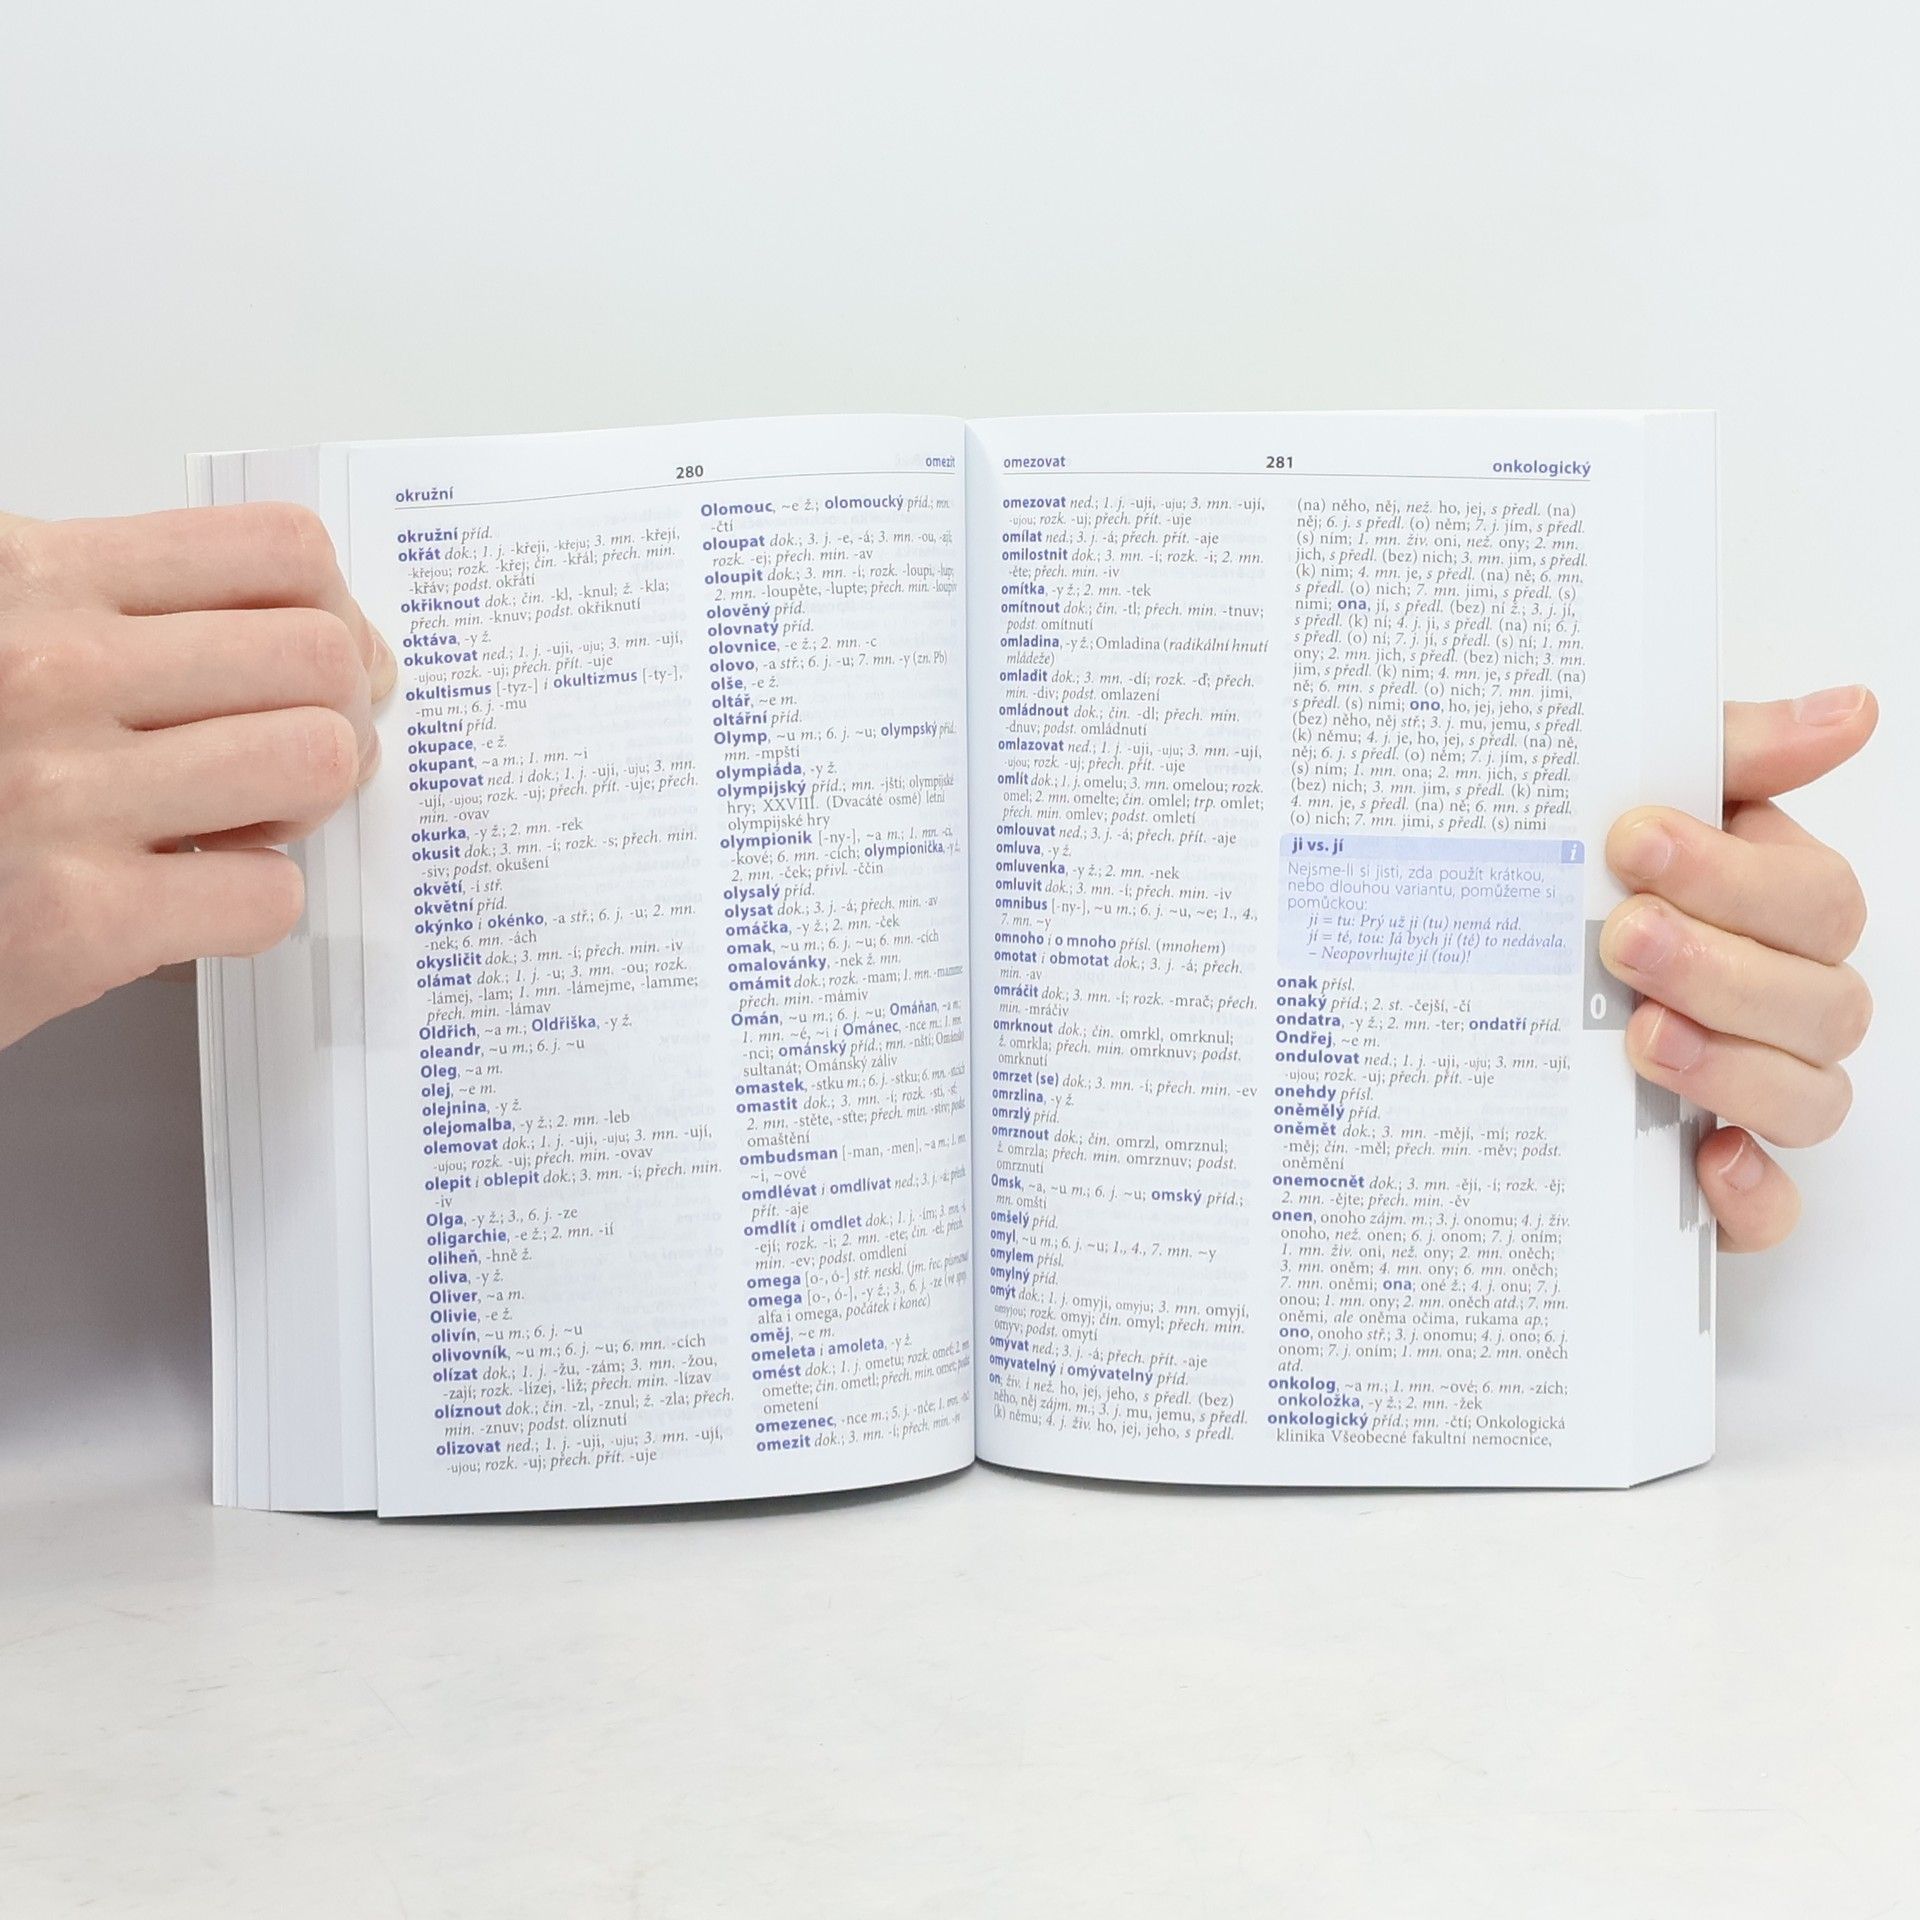 okružní
280
omezit
okružní příd.
okřát dok.; 1. j. -křeji, -křeju; 3. mn. -křejí,
-křejou; rozk. -křej; čin. -křál; přech. min.
-křáv; podst. okřátí
okřiknout dok.; čin. -kl, -knul; ž. -kla;
přech. min. -knuv; podst. okřiknutí
oktáva, -y ž.
okukovat ned.; 1. j. -uji, -uju; 3. mn. -ují,
-ujou; rozk. -uj; přech. přít. -uje
okultismus [-tyz-] i okultizmus [-ty-],
-mu m.; 6. j. -mu
okultní příd.
okupace, -e ž.
okupant, ~a m.; 1. mn. ~i
okupovat ned. i dok.; 1. j. -uji, -uju; 3. mn.
-ují, -ujou; rozk. -uj; přech. přít. -uje; přech.
min. -ovav
okurka, -y ž.; 2. mn. -rek
okusit dok.; 3. mn. -í; rozk. -s; přech. min.
-siv; podst. okušení
okvětí, -í stř.
okvětní příd.
okýnko i okénko, -a stř.; 6. j. -u; 2. mn.
-nek; 6. mn. -ách
okysličit dok.; 3. mn. -í; přech. min. -iv
olámat dok.; 1. j. -u; 3. mn. -ou; rozk.
-lámej, -lam; 1. mn. -lámejme, -lamme;
přech. min. -lámav
Oldřich, ~a m.; Oldřiška, -y ž.
oleandr, ~u m.; 6. j. ~u
Oleg, ~a m.
olej, ~e m.
olejnina, -y ž.
olejomalba, -y ž.; 2. mn. -leb
olemovat dok.; 1. j. -uji, -uju; 3. mn. -ují,
-ujou; rozk. -uj; přech. min. -ovav
olepit i oblepit dok.; 3. mn. -í; přech. min.
-iv
Olga, -y ž.; 3., 6. j. -ze
oligarchie, -e ž.; 2. mn. -ií
oliheň, -hně ž.
oliva, -y ž.
Oliver, ~a m.
Olivie, -e ž.
olivín, ~u m.; 6. j. ~u
olivovník, ~u m.; 6. j. ~u; 6. mn. -cích
olízat dok.; 1. j. -žu, -zám; 3. mn. -žou,
-zají; rozk. -lízej, -liž; přech. min. -lízav
olíznout dok.; čin. -zl, -znul; ž. -zla; přech.
min. -znuv; podst. olíznutí
olizovat ned.; 1. j. -uji, -uju; 3. mn. -ují,
-ujou; rozk. -uj; přech. přít. -uje
Olomouc, ~e ž.; olomoucký příd.; mn.
-čtí
oloupat dok.; 3. j. -e, -á; 3. mn. -ou, -ají;
rozk. -ej; přech. min. -av
oloupit dok.; 3. mn. -í; rozk. -loupi, -lup;
2. mn. -loupěte, -lupte; přech. min. -loupiv
olověný příd.
olovnatý příd.
olovnice, -e ž.; 2. mn. -c
olovo, -a stř.; 6. j. -u; 7. mn. -y (zn. Pb)
olše, -e ž.
oltář, ~e m.
oltářní příd.
Olymp, ~u m.; 6. j. ~u; olympský příd.
mn. -mpští
olympiáda, -y ž.
olympijský příd.; mn. -jští; olympijské
hry; XXVIII. (Dvacáté osmé) letní
olympijské hry
olympionik [-ny-], ~a m.; 1. mn. -ci,
-kové; 6. mn. -cích; olympionička, -y ž.
2. mn. -ček; přivl. -ččin
olysalý příd.
olysat dok.; 3. j. -á; přech. min. -av
omáčka, -y ž.; 2. mn. -ček
omak, ~u m.; 6. j. ~u; 6. mn. -cích
omalovánky, -nek ž. mn.
omámit dok.; rozk. -mam; 1. mn. -mamme
přech. min. -mámiv
Omán, ~u m.; 6. j. ~u; Ománan, ~a m.;
1. mn. ~é, ~i i Ománec, -nce m.; 1. mn.
-nci; ománský příd.; mn. -nští; Ománský
sultanát; Ománský záliv
omastek, -stku m.; 6. j. -stku; 6. mn. -stcích
omastit dok.; 3. mn. -í; rozk. -sti, -sť;
2. mn. -stěte, -sťte; přech. min. -stiv; podst.
omaštění
ombudsman [-man, -men], ~a m.; 1. mn.
~i, ~ové
omdlévat i omdlívat ned.; 3. j. -á; přech.
přít. -aje
omdlít i omdlet dok.; 1. j. -ím; 3. mn. -í
-ejí; rozk. -i; 2. mn. -ete; čin. -el; přech.
min. -ev; podst. omdlení
omega [o-, ó-] stř. neskl. (jm. řec. písmena)
omega [o-, ó-], -y ž.; 3., 6. j. -ze (ve spoj.
alfa i omega, počátek i konec)
oměj, ~e m.
omeleta i amoleta, -y ž.
omést dok.; 1. j. ometu; rozk. omeť; 2. mn.
omeťte; čin. ometl; přech. min. omet; podst.
ometení
omezenec, -nce m.; 5. j. -nče; 1. mn. -nci
omezit dok.; 3. mn. -í; přech. min. -iv
omezovat
281
onkologický
omezovat ned.; 1. j. -uji, -uju; 3. mn. -ují,
-ujou; rozk. -uj; přech. přít. -uje
omílat ned.; 3. j. -á; přech. přít. -aje
omilostnit dok.; 3. mn. -í; rozk. -i; 2. mn.
-ěte; přech. min. -iv
omítka, -y ž.; 2. mn. -tek
omítnout dok.; čin. -tl; přech. min. -tnuv;
podst. omítnutí
omladina, -y ž.; Omladina (radikální hnutí
mládeže)
omladit dok.; 3. mn. -dí; rozk. -ď; přech.
min. -div; podst. omlazení
omládnout dok.; čin. -dl; přech. min.
-dnuv; podst. omládnutí
omlazovat ned.; 1. j. -uji, -uju; 3. mn. -ují,
-ujou; rozk. -uj; přech. přít. -uje
omlít dok.; 1. j. omelu; 3. mn. omelou; rozk.
omel; 2. mn. omelte; čin. omlel; trp. omlet;
přech. min. omlev; podst. omletí
omlouvat ned.; 3. j. -á; přech. přít. -aje
omluva, -y ž.
omluvenka, -y ž.; 2. mn. -nek
omluvit dok.; 3. mn. -í; přech. min. -iv
omnibus [-ny-], ~u m.; 6. j. ~u, ~e; 1., 4.,
7. mn. ~y
omnoho i o mnoho přísl. (mnohem)
omotat i obmotat dok.; 3. j. -á; přech.
min. -av
omráčit dok.; 3. mn. -í; rozk. -mrač; přech.
min. -mráčiv
omrknout dok.; čin. omrkl, omrknul;
ž. omrkla; přech. min. omrknuv; podst.
omrknutí
omrzet (se) dok.; 3. mn. -í; přech. min. -ev
omrzlina, -y ž.
omrzlý příd.
omrznout dok.; čin. omrzl, omrznul;
ž. omrzla; přech. min. omrznuv; podst.
omrznutí
Omsk, ~a, ~u m.; 6. j. ~u; omský příd.;
mn. omští
omšelý příd.
omyl, ~u m.; 6. j. ~u; 1., 4., 7. mn. ~y
omylem přísl.
omylný příd.
omýt dok.; 1. j. omyji, omyju; 3. mn. omyjí,
omyjou; rozk. omyj; čin. omyl; přech. min.
omyv; podst. omytí
omývat ned.; 3. j. -á; přech. přít. -aje
omyvatelný i omývatelný příd.
on; živ. i než. ho, jej, jeho, s předl. (bez)
něho, něj zájm. m.; 3. j. mu, jemu, s předl.
(k) němu; 4. j. živ. ho, jej, jeho, s předl.
(na) něho, něj, než. ho, jej, s předl. (na)
něj; 6. j. s předl. (o) něm; 7. j. jím, s předl.
(s) ním; 1. mn. živ. oni, než. ony; 2. mn.
jich, s předl. (bez) nich; 3. mn. jim, s předl.
(k) nim; 4. mn. je, s předl. (na) ně; 6. mn.
s předl. (o) nich; 7. mn. jimi, s předl. (s)
nimi; ona, jí, s předl. (bez) ní ž.; 3. j. jí,
s předl. (k) ní; 4. j. ji, s předl. (na) ni; 6. j.
s předl. (o) ní; 7. j. jí, s předl. (s) ní; 1. mn.
ony; 2. mn. jich, s předl. (bez) nich; 3. mn.
jim, s předl. (k) nim; 4. mn. je, s předl. (na)
ně; 6. mn. s předl. (o) nich; 7. mn. jimi,
s předl. (s) nimi; ono, ho, jej, jeho, s předl.
(bez) něho, něj stř.; 3. j. mu, jemu, s předl.
(k) němu; 4. j. je, ho, jej, s předl. (na) ně,
něj; 6. j. s předl. (o) něm; 7. j. jím, s předl.
(s) ním; 1. mn. ona; 2. mn. jich, s předl.
(bez) nich; 3. mn. jim, s předl. (k) nim;
4. mn. je, s předl. (na) ně; 6. mn. s předl.
(o) nich; 7. mn. jimi, s předl. (s) nimi
ji vs. jí
i
Nejsme-li si jisti, zda použít krátkou,
nebo dlouhou variantu, pomůžeme si
pomůckou:
ji = tu: Prý už ji (tu) nemá rád.
jí = té, tou: Já bych jí (té) to nedávala.
– Neopovrhujte jí (tou)!
onak přísl.
onaký příd.; 2. st. -čejší, -čí
ondatra, -y ž.; 2. mn. -ter; ondatří příd.
Ondřej, ~e m.
ondulovat ned.; 1. j. -uji, -uju; 3. mn. -ují,
-ujou; rozk. -uj; přech. přít. -uje
onehdy přísl.
oněmělý příd.
oněmět dok.; 3. mn. -mějí, -mí; rozk.
-měj; čin. -měl; přech. min. -měv; podst.
oněmění
onemocnět dok.; 3. mn. -ějí, -í; rozk. -ěj;
2. mn. -ějte; přech. min. -ěv
onen, onoho zájm. m.; 3. j. onomu; 4. j. živ.
onoho, než. onen; 6. j. onom; 7. j. oním;
1. mn. živ. oni, než. ony; 2. mn. oněch;
3. mn. oněm; 4. mn. ony; 6. mn. oněch;
7. mn. oněmi; ona; oné ž.; 4. j. onu; 7. j.
onou; 1. mn. ony; 2. mn. oněch atd.; 7. mn.
oněmi, ale oněma očima, rukama ap.;
ono, onoho stř.; 3. j. onomu; 4. j. ono; 6. j.
onom; 7. j. oním; 1. mn. ona; 2. mn. oněch
atd.
onkolog, ~a m.; 1. mn. ~ové; 6. mn. -zích;
onkoložka, -y ž.; 2. mn. -žek
onkologický příd.; mn. -čtí; Onkologická
klinika Všeobecné fakultní nemocnice,
O